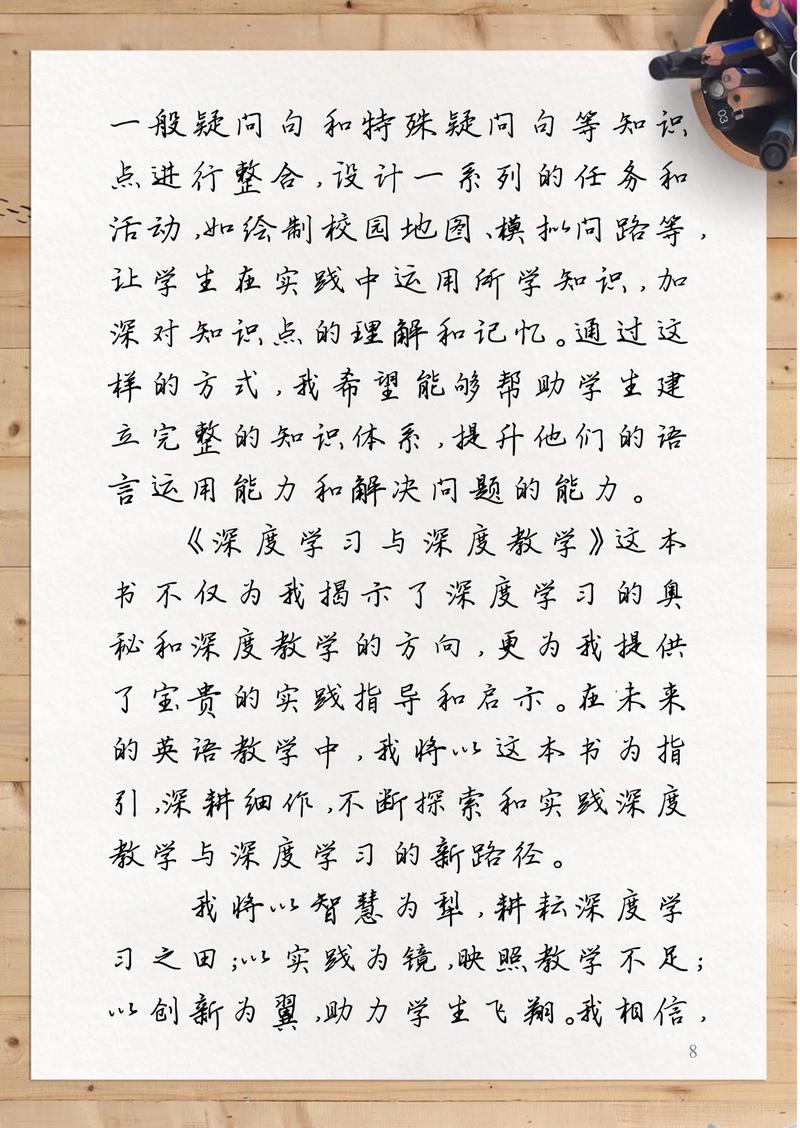 一般疑问句和特殊疑问句等知识
点进行整合,设计一系列的任务和
活动,如绘制校园地图、模拟问路等,
让学生在实践中运用所学知识,加
深对知识点的理解和记忆。通过这
样的方式,我希望能够帮助学生建
立完整的知识体系,提升他们的语
言运用能力和解决问题的能力。
《深度学习与深度教学》这本
书不仅为我揭示了深度学习的奥
秘和深度教学的方向,更为我提供
了宝贵的实践指导和启示。在未来
的英语教学中,我将以这本书为指
引,深耕细作,不断探索和实践深度
教学与深度学习的新路径。
我将以智慧为犁,耕耘深度学
习之田;以实践为镜,映照教学不足;
以创新为翼,助力学生飞翔。我相信,
8